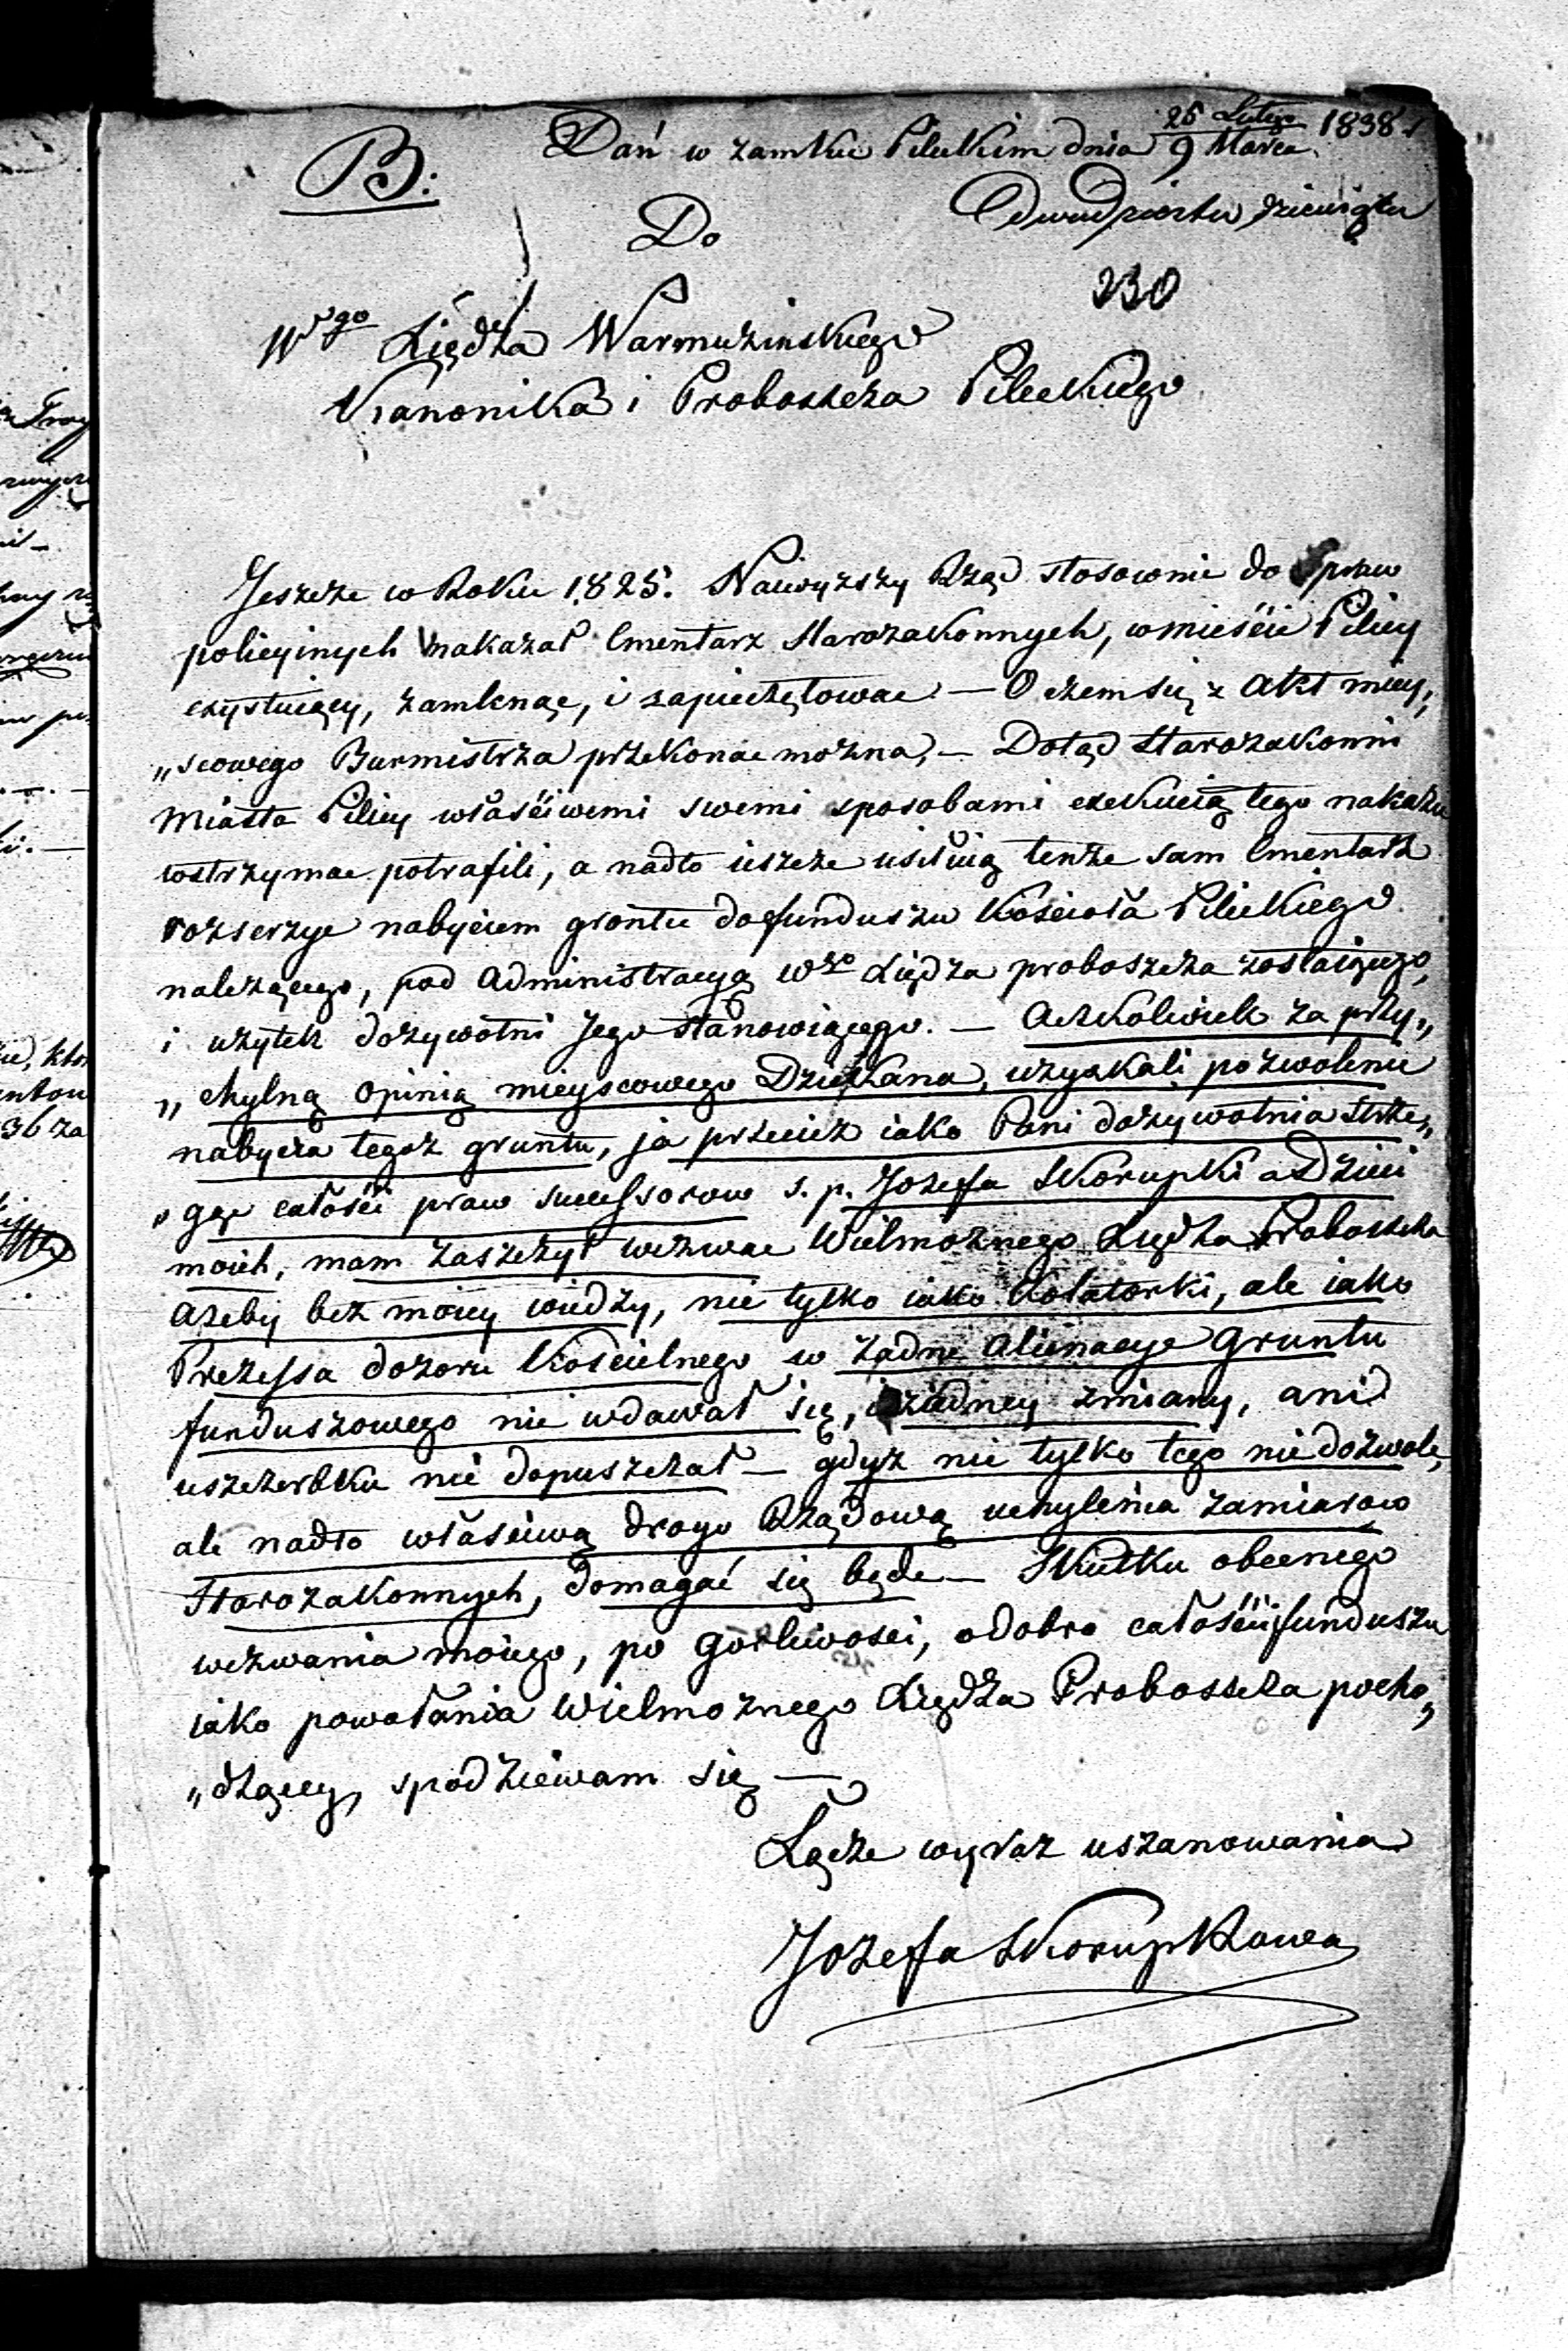 B:
Dań w zamku Pileckim dnia 25 Lutego / 9 Marca 1838 r
Dwudziesta dziewiąta
Do
230
Wgo Xiędza Warmuzinskiego
Kanonika i Proboszcza Pileckiego
Jeszcze w Roku 1825. Naiwyższy Rząd stosownie do praw
policyinych nakazał Cmentarz Starozakonnych, w mieście Pilicy
exystuiący, zamknąć, i zapieczętowac — O czem się z Akt miey„
„scowego Burmistrza przekonac można, — Dotąd Starozakonni
Miasta Pilicy właściwemi swemi sposobami exekucią tego nakazu
wstrzymac potrafili, a nadto ieszcze usiłuią tenże sam Cmentarz
rozserzyc nabyciem grontu do funduszu Kościoła Pileckiego
należącego, pod Administracyą Wgo Xiędza proboszcza zostaiącego,
i użytek dożywotni Jego stanowiącego. — Aczkolwiek za przy„
„chylną opinią mieyscowego Dziekana, uzyskali pozwolenie
nabycia tegoż gruntu, ja przecież iako Pani dożywotnia strze„
„gąc całości praw sucessorow s. p. Jozefa Skorupki a Dzieci
moich, mam zaszczyt wezwac Wielmożnego Xiędza Proboszcza
ażeby bez moiey wiedzy, nie tylko iako Kolatorki, ale iako
Prezessa dozoru Kościelnego w żadne alienacye Gruntu
funduszowego nie wdawał się, i żadney zmiany, ani
uszczerbku nie dopuszczał — gdyż nie tylko tego nie dozwole,
ale nadto właściwą drogo Rządową uchylenia zamiarow
Starozakonnych, domagać się będe — Skutku obecnego
wezwania moiego, po gorliwosci, o dobro całości funduszu
iako powołania Wielmożnego Xiędza Proboszcza pocho„
„dzącey, spodziewam się —
Łącze wyraz uszanowania
Jozefa Skorupkowa